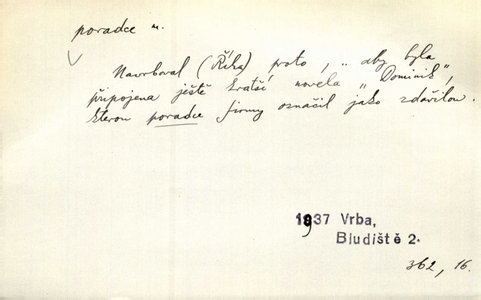 poradce m.
Navrhoval (Říha) proto, „aby byla
připojena ještě kratší novela „Dominik",
kterou poradce firmy označil jako zdařilou.
1937 Vrba,
Bludiště 2.
362, 16.